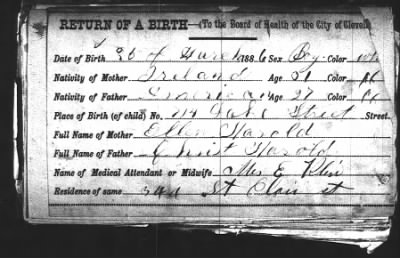 RETURN OF A BIRTH—(To the Board of Health of the City of Clevel
Date of Birth 25 of 1886 Sex Boy Color
Nativity of Mother Ireland Age 21 Color
Nativity of Father Age 27 Color
Place of Birth (of child) No. Street Street.
Full Name of Mother Ellen Harold
Full Name of Father Christ Harold
Name of Medical Attendant or Midwife Mrs E
Residence of same St Clair st